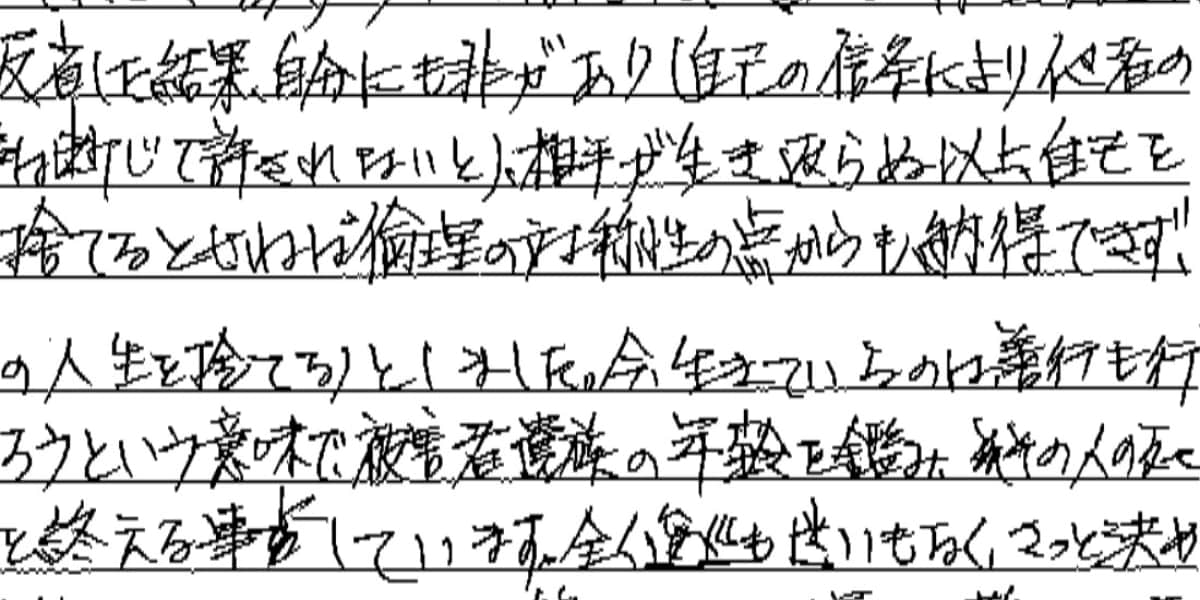 反省した結果、自分にも非があり(自己の信条により他者の
は断じて許されないと)、相手が生き返らぬ以上自己を
捨てるとせねば倫理の対称性の点からも納得できず、
の人生を捨てる)としました。今、生きているのは善行も行
ろうという意味で、被害者遺族の年齢を鑑み、その人の死で
を終える事としています。全く迷いもなく、さっと決め